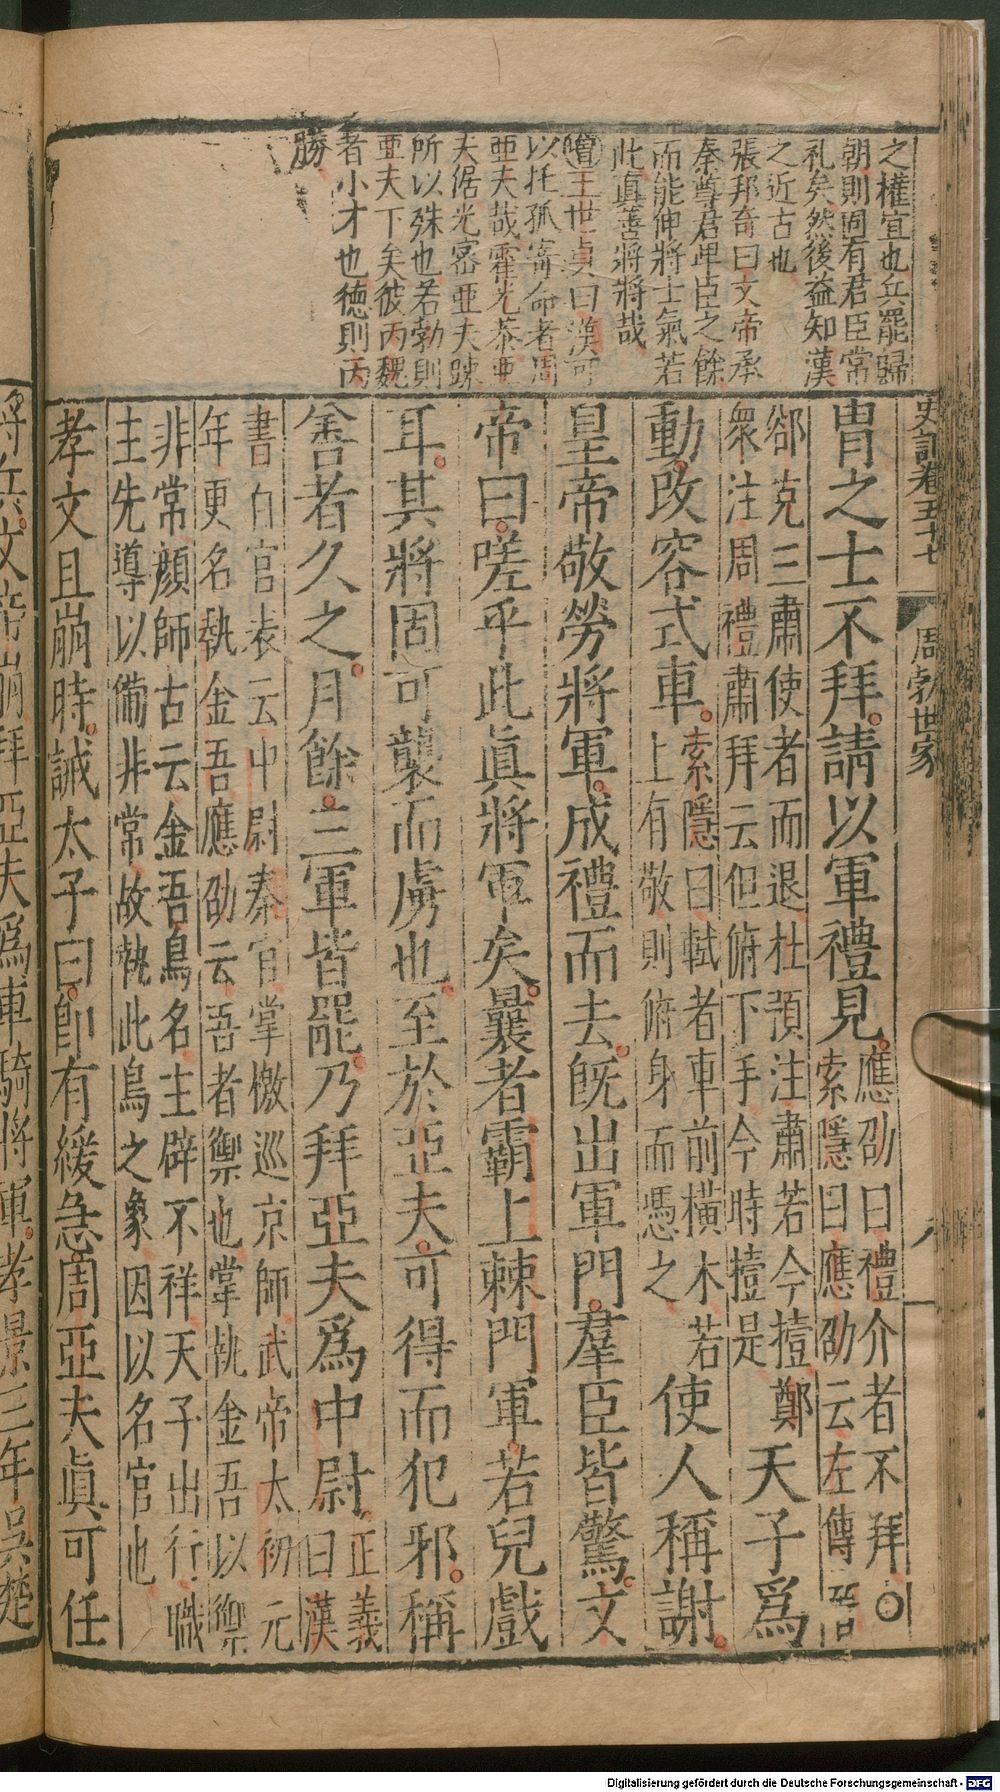 史記卷五十七
周勃世家
八
之權宜也兵罷歸
朝則固有君臣常
礼矣然後益知漢
之近古也
張邦奇曰文帝承
秦尊君卑臣之餘
而能伸將士氣若
此真善將將哉
增王世貞曰漢可
以托孤寄命者周
亞夫哉霍光茶亜
夫倨光密亞夫踈
所以殊也若勃則
亜夫下矣彼丙魏
者小才也徳則丙
勝
冑之士不拜請以軍禮見應劭曰禮介者不拜○
索隱曰應劭云左傳晉
郤克三肅使者而退杜預注肅若今撎鄭
衆注周禮肅拜云但俯下手今時撎是
天子爲
動改容式車索隱曰軾者車前橫木若
上有敬則俯身而憑之
使人稱謝
皇帝敬勞將軍成禮而去旣出軍門羣臣皆驚文
帝曰嗟乎此眞將軍矣曩者霸上棘門軍若兒戲
耳其將固可襲而虜也至於亞夫可得而犯邪稱
善者久之月餘三軍皆罷乃拜亞夫爲中尉正義
曰漢
書百官表云中尉秦官掌檄巡京師武帝太初元
年更名執金吾應劭云吾者禦也掌執金吾以禦
非常顔師古云金吾鳥名主辟不祥天子出行職
主先導以備非常故執此鳥之象因以名官也
孝文且崩時誡太子曰卽有緩急周亞夫眞可任
將兵文帝崩拜亞夫爲車騎將軍孝景三年吳楚
Digitalisierung gefördert durch die Deutsche Forschungsgemeinschaft - DFG